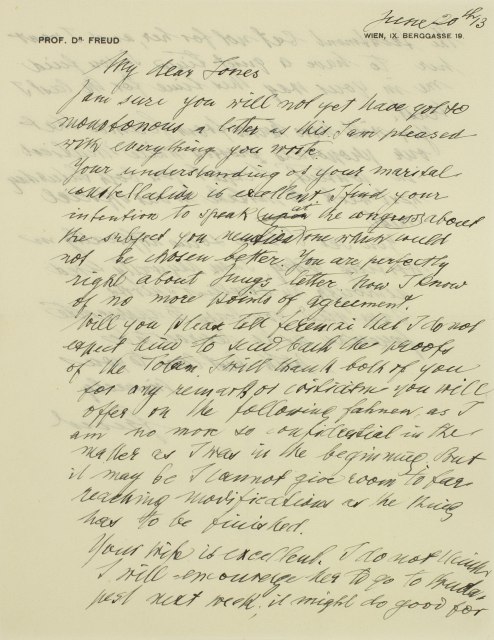 June 20th/13
PROF. DR. FREUD
WIEN, IX. BERGGASSE 19.
My dear Jones
I am sure you will not yet have got so
monotonous a letter as this. I am pleased
with everything you wrote.
Your understanding of your marital
constellation is excellent. I find your
intention to speak (upon at the congress) about
the subject you mention one which could
not be chosen better. You are perfectly
right about Jungs letter. Now I know
of no more points of agreement.
Will you please tell Ferenczi that I do not
expect him to send back the proofs
of the Totem. I will thank both of you
for any remark or criticism you will
offer on the following fahnen, as I
am no more so confidential in the
matter as I was in the beginning. But
it may be I cannot give room to far
reaching modifications as the thing
has to be finished.
Your wife is excellent. I do not think
I will encourage her to go to Buda-
pest next week, it might do good for